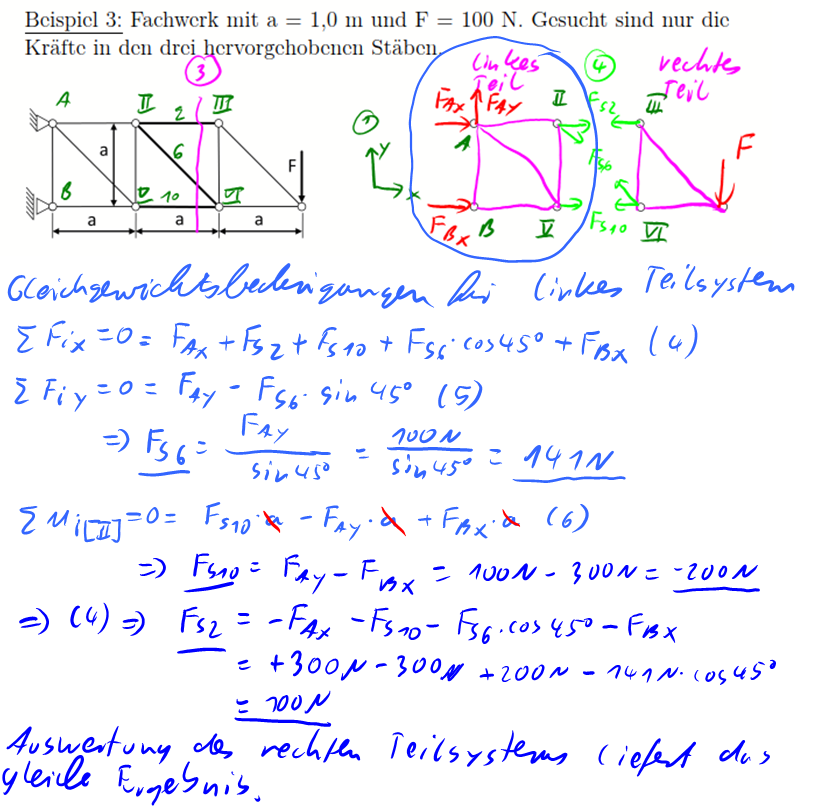 Beispiel 3: Fachwerk mit a = 1,0 m und F = 100 N. Gesucht sind nur die
Kräfte in den drei hervorgehobenen Stäben.
3
A
II
2
III
a
6
F
B
V
10
VI
a
a
a
1
y
x
linkes
Teil
FAx
FAy
II
A
FBx
B
V
4
rechtes
Teil
FS2
III
FS6
F
FS10
VI
Gleichgewichtsbedingungen für linkes Teilsystem
Σ Fix = 0 = FAx + FS2 + FS10 + FS6 · cos 45° + FBx (4)
Σ Fiy = 0 = FAy - FS6 · sin 45° (5)
=> FS6 = FAy / sin 45° = 100N / sin 45° = 141N
Σ Mi[II] = 0 = FS10 · a - FAy · a + FBx · a (6)
=> FS10 = FAy - FBx = 100N - 300N = -200N
=> (4) => FS2 = -FAx - FS10 - FS6 · cos 45° - FBx
= +300N - 300N + 200N - 141N · cos 45°
= 100N
Auswertung des rechten Teilsystems liefert das
gleiche Ergebnis.